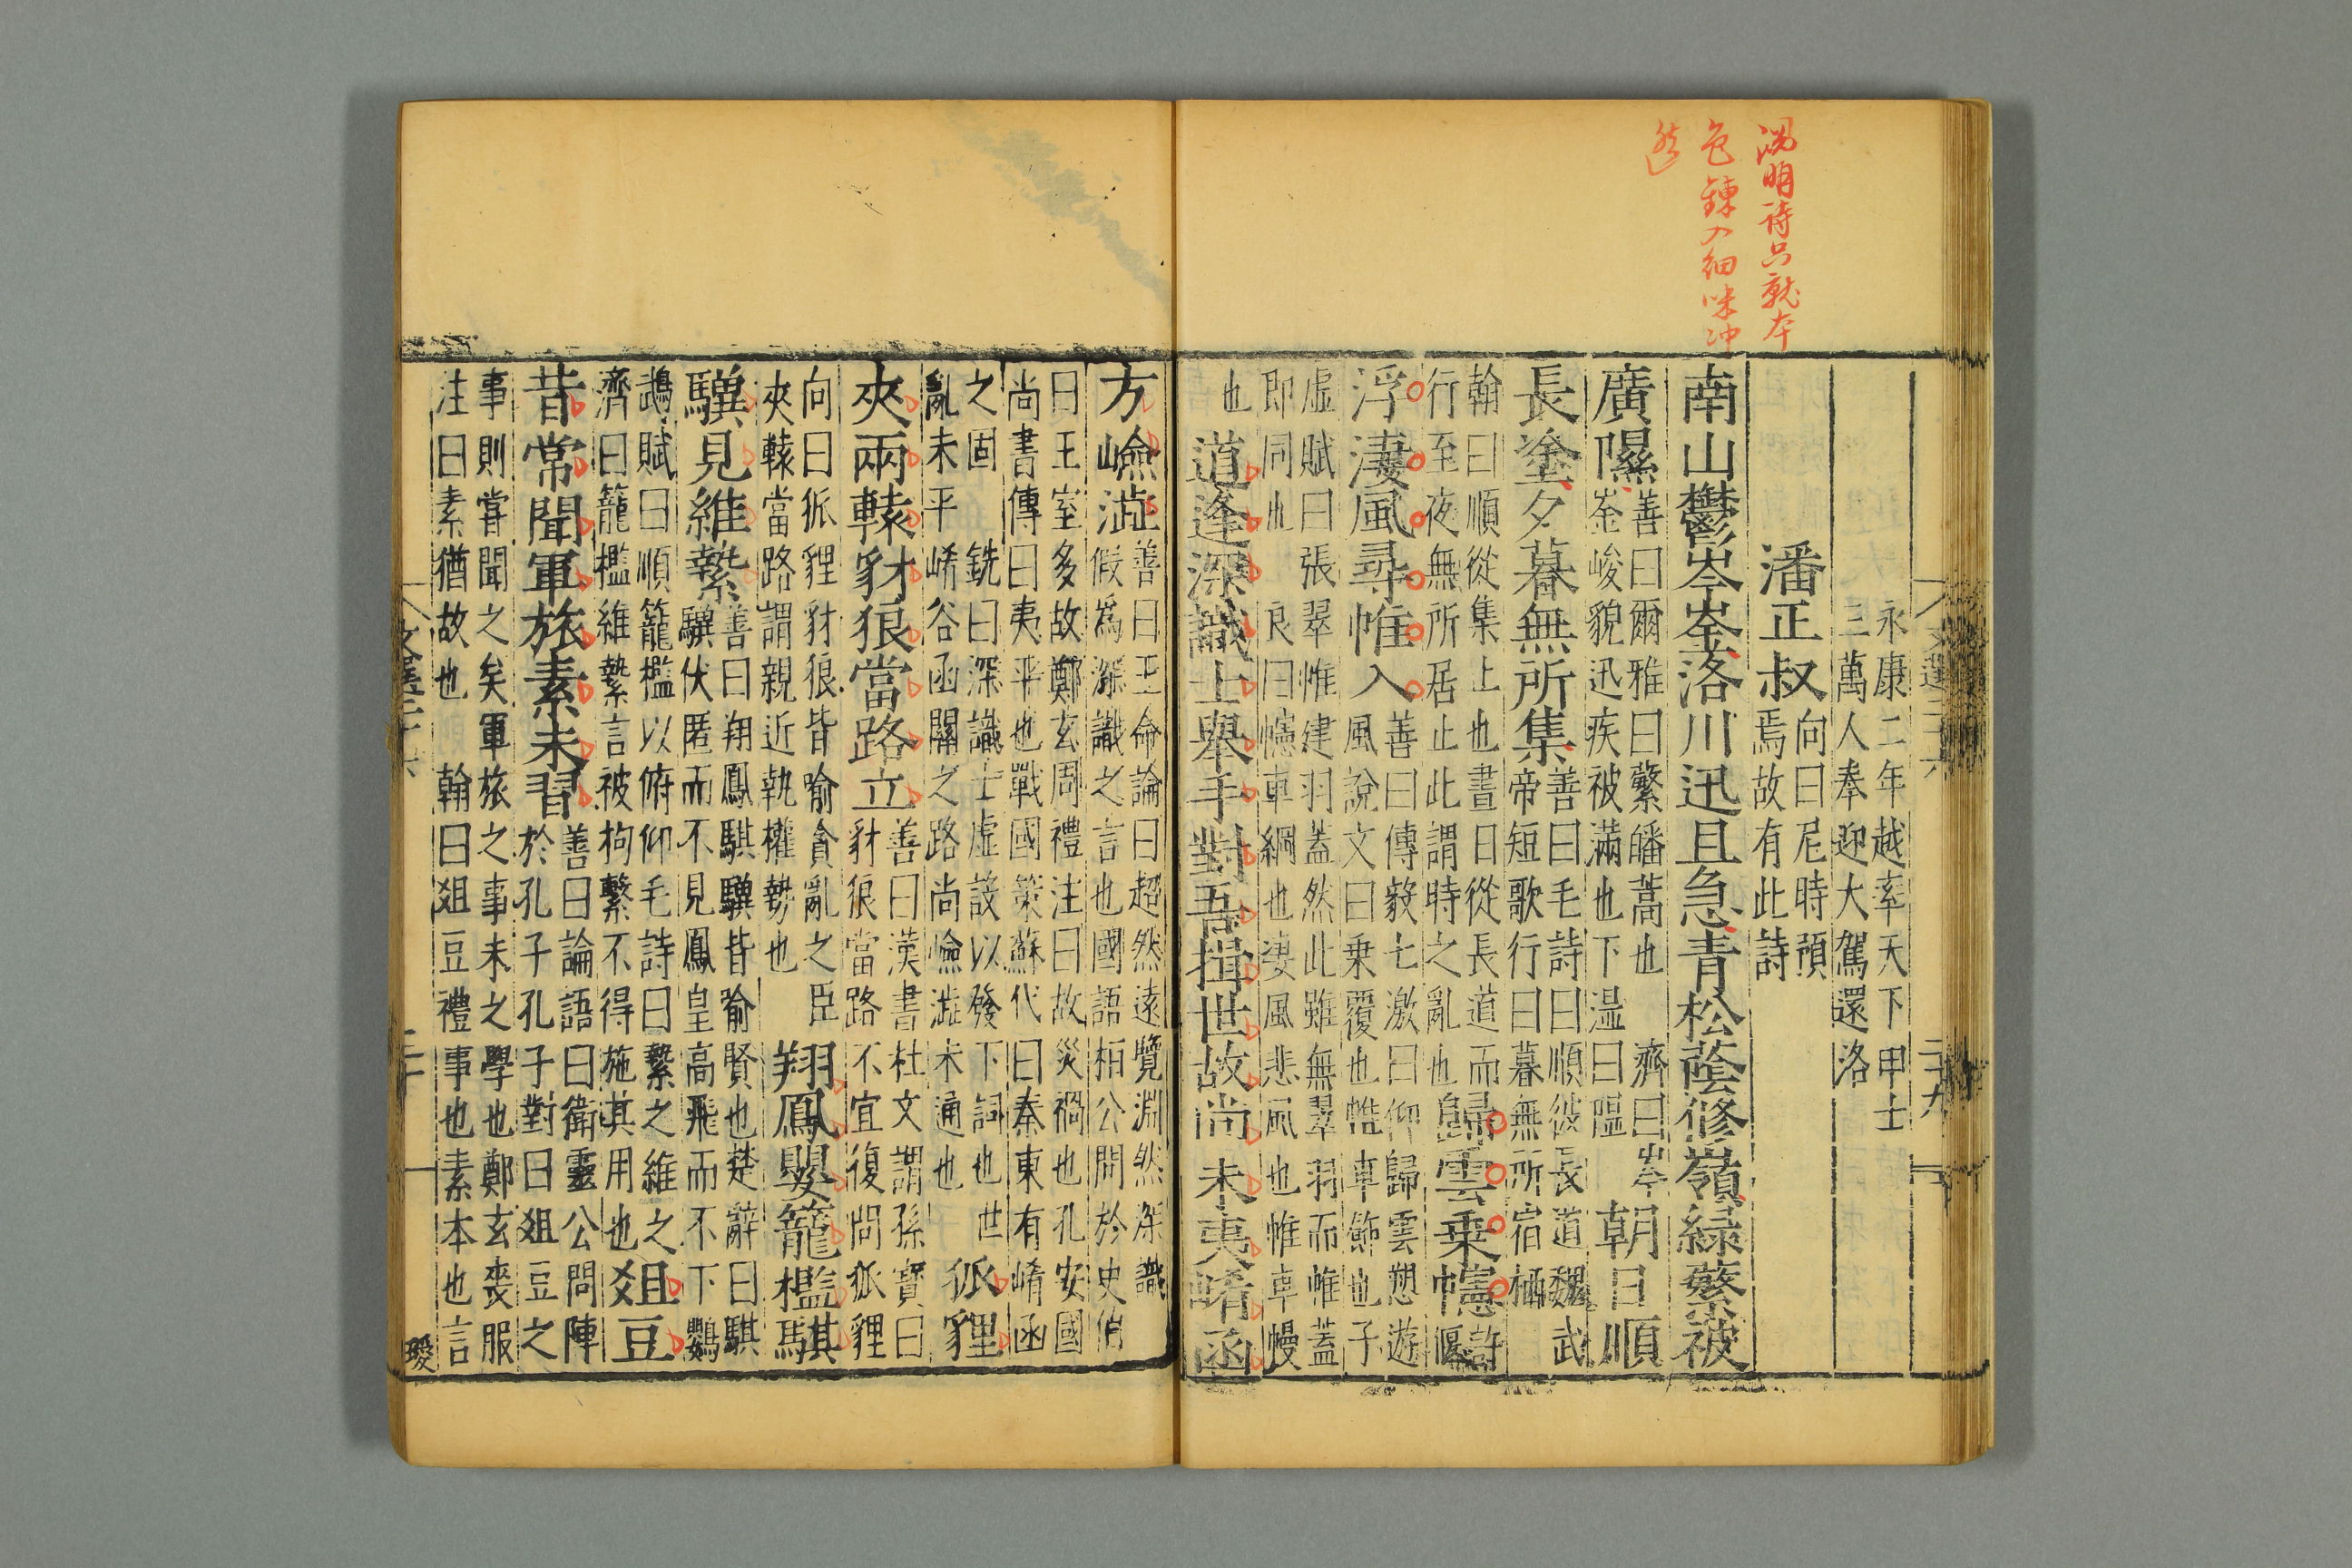 淵明詩只就本
色鍊入細味冲
然
永康二年越率天下甲士
三萬人奉迎大駕還洛
潘正叔
向曰尼時預
焉故有此詩
南山鬱岑崟洛川迅且急青松蔭修嶺綠蘩被
廣隰
善曰爾雅曰蘩皤蒿也
崟峻貌迅疾被滿也下濕曰隰
齊曰岑
朝日順
長塗夕暮無所集
善曰毛詩曰順彼長道魏武
帝短歌行曰暮無所宿栖
翰曰順從集止也晝日從長道而
行至夜無所居止此謂時之亂也
歸雲乗幰
浮淒風尋帷入
善曰傅毅七激曰仰歸雲愬遊
風說文曰乗覆也幨車飾也子
虛賦曰張翠帷建羽蓋然此雖無翠羽而帷蓋
即同也
良曰幰車網也淒風悲風也帷車幔
也
道逢深識士舉手對吾揖世故尚未夷崤函
方嶮澁
善曰王命論曰超然遠覽淵然深識
假爲深識之言也國語桓公問於史伯
曰王室多故鄭玄周禮注曰故災禍也孔安國
尚書傳曰夷平也戰國策蘇代曰秦東有崤函
之固
銑曰深識士虛設以發下詞也世
亂未平崤谷函關之路尚嶮澁未通也
狐狸
夾兩轅豺狼當路立
善曰漢書杜文謂孫寳曰
豺狼當路不宜復問狐狸
向曰狐狸豺狼皆喻貪亂之臣
夾轅當路謂親近執權勢也
翔鳳嬰籠檻騏
驥見維縶
善曰翔鳳騏驥皆喻賢也楚辭曰騏
驥伏匿而不見鳳皇高飛而不下鸚
鵡賦曰順籠檻以俯仰毛詩曰縶之維之
濟曰籠檻維縶言被拘繫不得施其用也
爼豆
昔常聞軍旅素未習
善曰論語曰衛靈公問陣
於孔子孔子對曰爼豆之
事則嘗聞之矣軍旅之事未之學也鄭玄喪服
注曰素猶故也
翰曰爼豆禮事也素本也言
文選二十六
二十九